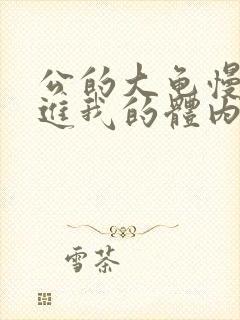 公的大龟慢
进我的體内
雪茶